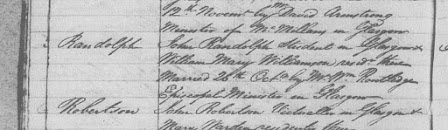 12th Novemr by Mr David Armstrong
Minister of Mc Millans in Glasgow
Randolph John Randolph Student in Glasgow &
William Mary Williamson resid. there
Married 26th Octr by Mr Wm Routledge
Episcopal Minister in Glasgow
Robertson John Robertson Victualler in Glasgow &
Mary Warden residente there